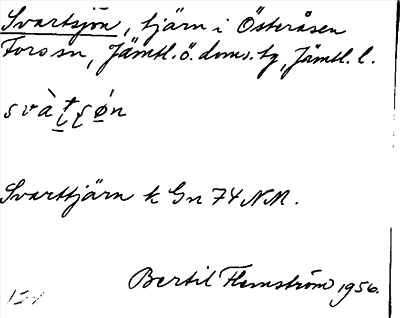 Svartsjön, tjärn i Österåsen
Fors sn, Jämtl. ö. doms. tg, Jämtl. l.
Svarttjärn k Gn 74 NM.
Bertil Flemström 1956.